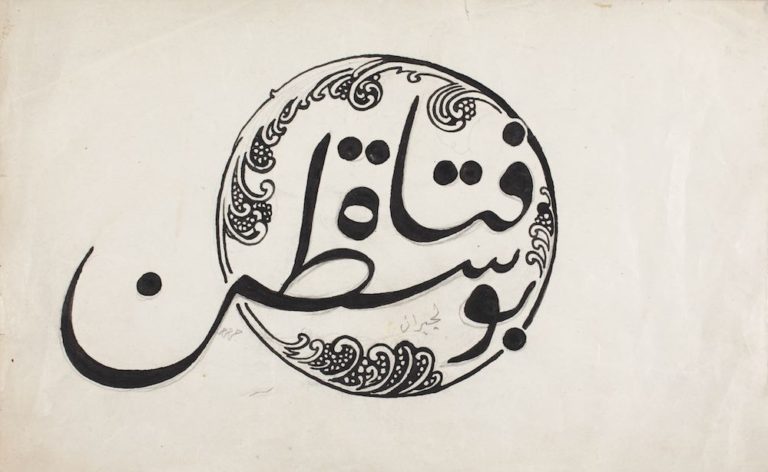 فتاة
بوسطن
لجبران